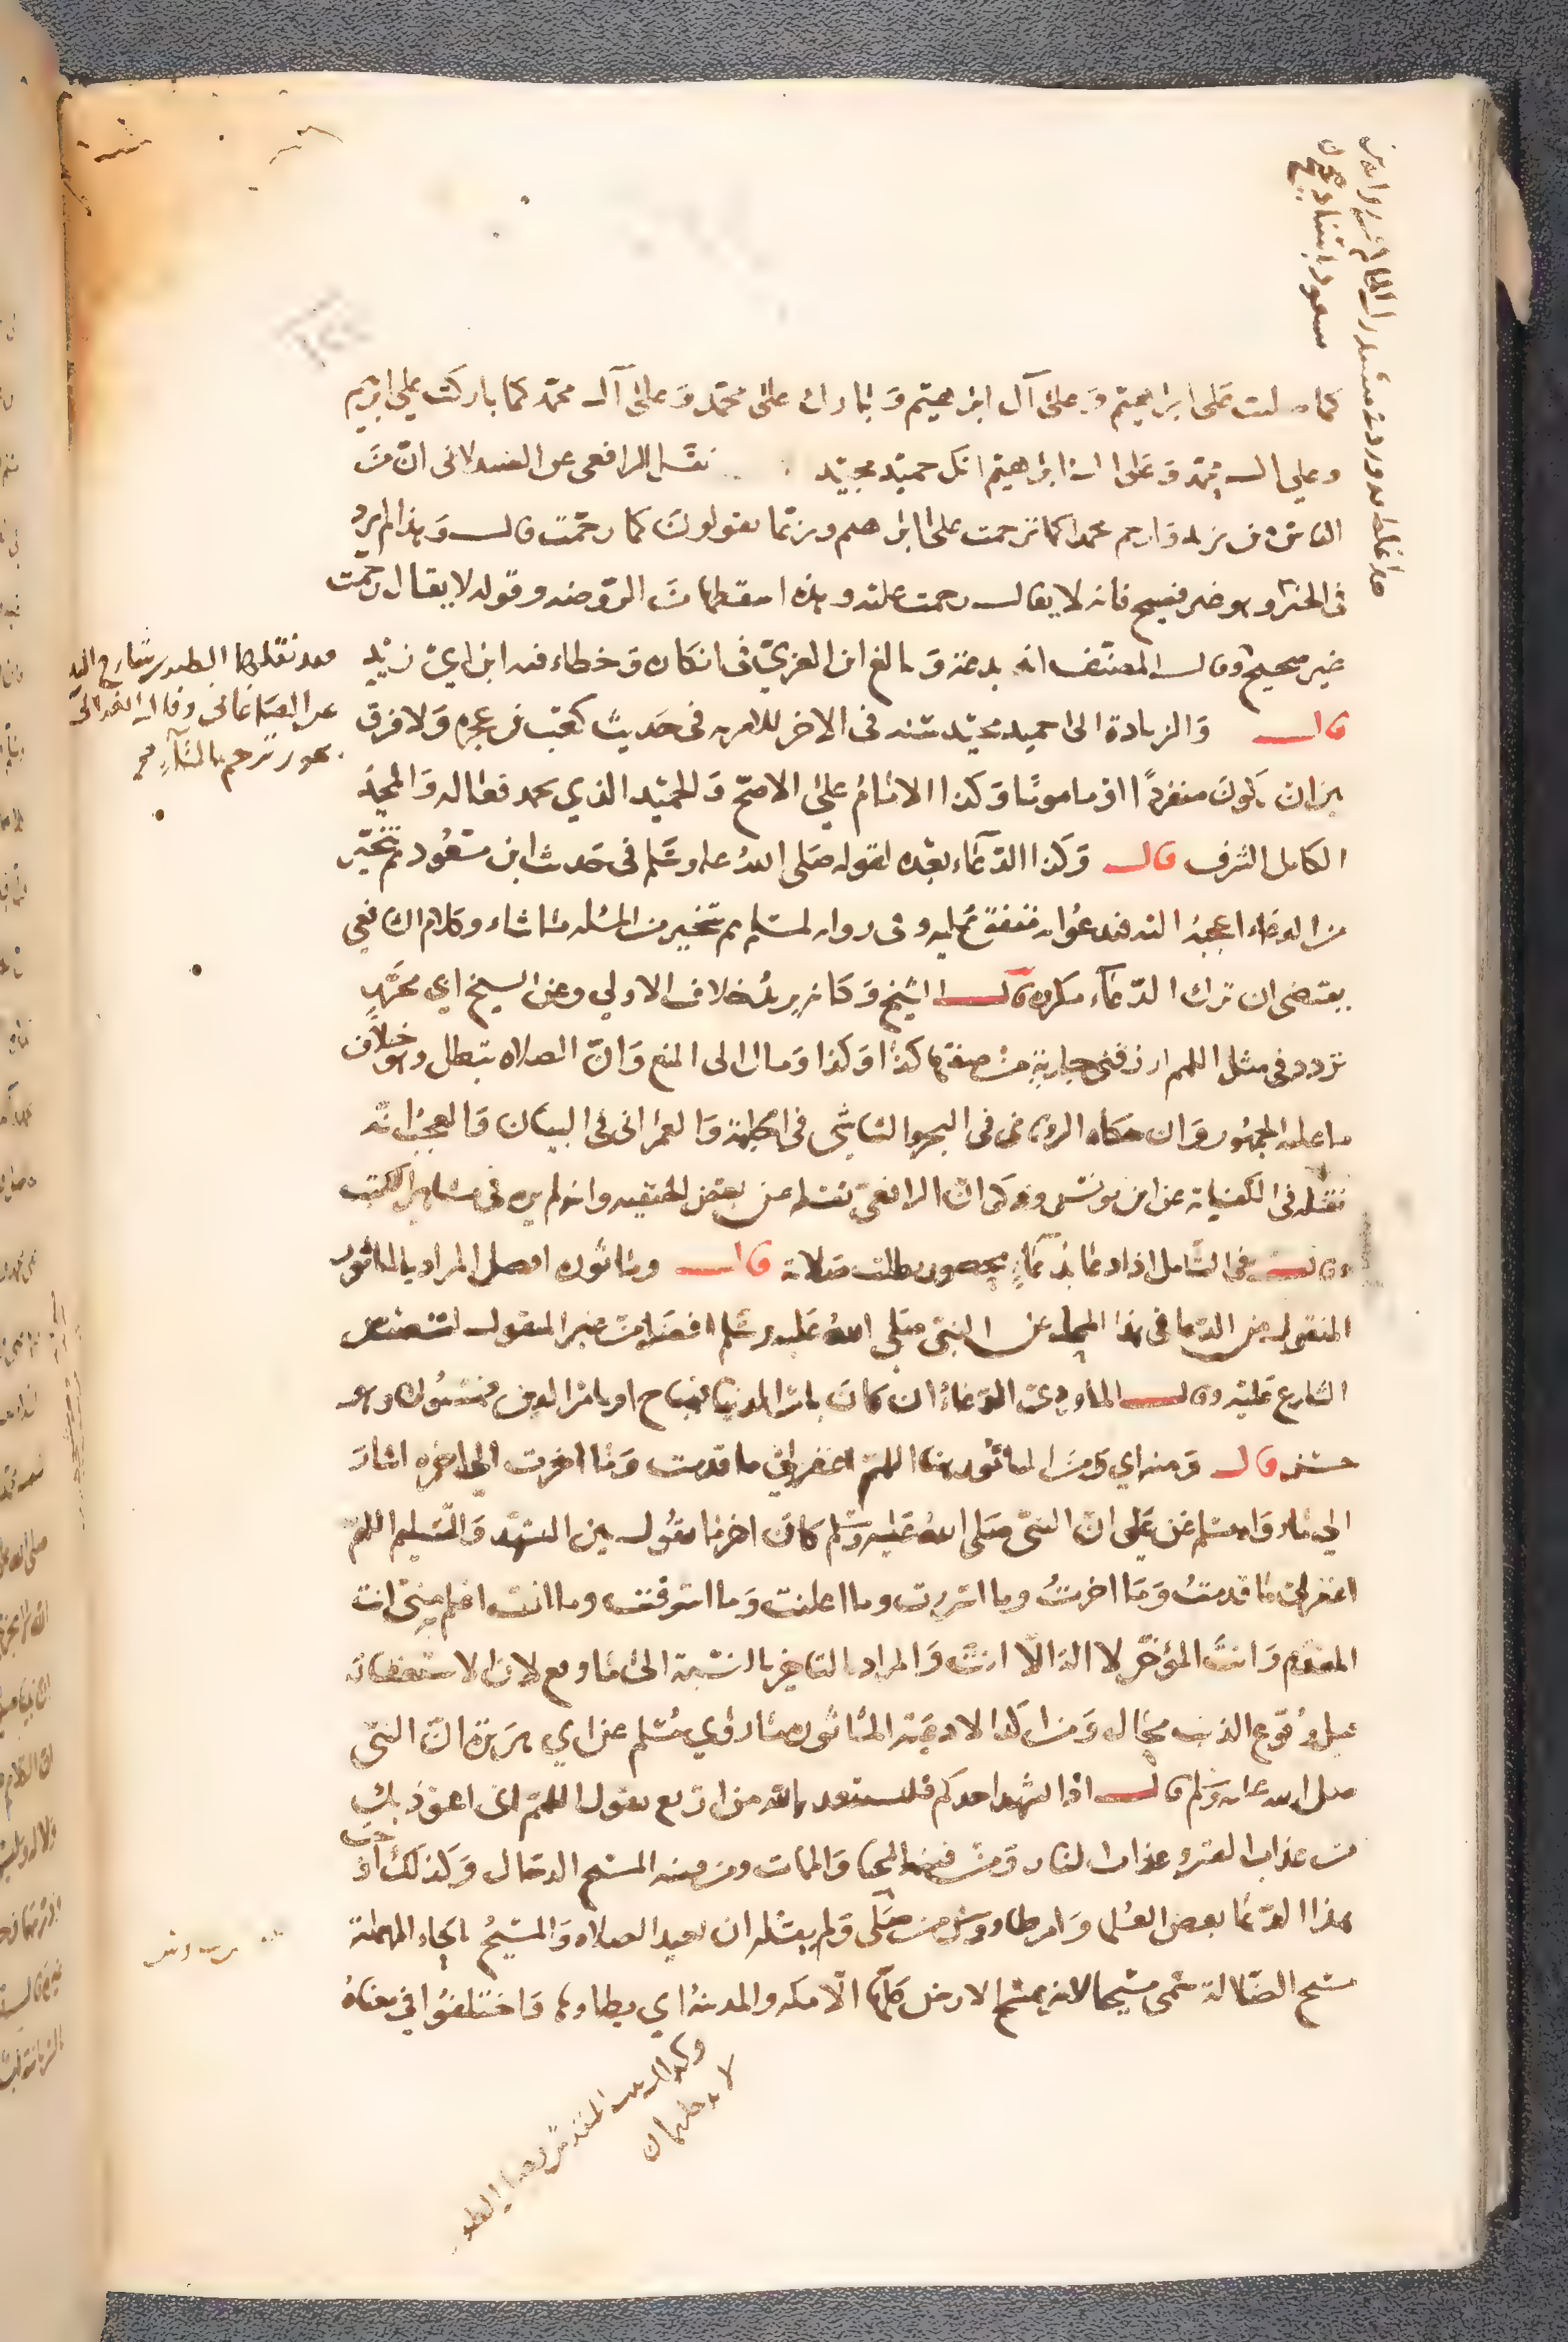 كما صليت على ابراهيم وعلى آل ابراهيم وبارك على محمد وعلى آل محمد كما باركت على ابراهيم
وعلى ال ابراهيم انك حميد مجيد نقل الرافعي عن الصيدلاني ان من
الناس من يزيد وارحم محمدا كما ترحمت على ابراهيم وربما يقولون كما رحمت قال وهذا لم يرد
في الخبر وهو غير فصيح فانه لا يقال رحمت عليه وهذه اسقطها من الروضة وقوله لا يقال رحمت
غير صحيح وقال المصنف انه بدعة وبالغ ابن العربي في انكاره وخطاء فيه ابن ابي زيد
قال والزيادة الى حميد مجيد سنة في الاخر للامر به في حديث كعب بن عجرة ولا فرق
بين ان يكون منفردا او ماموما وكذا الامام على الاصح والحميد الذي يحمد فعاله والمجيد
الكامل الشرف قال وكذا الدعاء بعده لقوله صلى الله عليه وسلم في حديث ابن مسعود ثم يتخير
من الدعاء اعجبه اليه فيدعوا به متفق عليه وفي رواية لمسلم ثم يتخير من المسئلة ما شاء وكلام الشافعي
يقتضي ان ترك الدعاء مكروه قال الشيخ وكانه يريد خلاف الاولى وعن الشيخ ابي محمد
تردد في مثل اللهم ارزقني جارية صفتها كذا وكذا ومال الى المنع وان الصلاة تبطل وهو خلاف
ما عليه الجمهور وان حكاه الروياني في البحر والشاشي في الحلية والعمراني في البيان والعجب انه
نقله في الكفاية عن ابن يونس وذكر ان الرافعي نقله عن بعض الحنفية وانه لم يره في مشاهير الكتب
وقال في الشامل اذا دعا بدعاء محصور بطلت صلاته قال وماثوره افضل المراد بالماثور
المنقول من الدعا في هذا المحل عن النبي صلى الله عليه وسلم افضل من غير المنقول لتنصيص
الشارع عليه وقال الماوردي الدعاء ان كان بامر الدنيا فمباح او بامر الدين فمسنون وهو
حسن قال ومنه اي ومن الماثور هنا اللهم اغفر لي ما قدمت وما اخرت الى اخره اشار
الى ما رواه مسلم عن علي ان النبي صلى الله عليه وسلم كان اخر ما يقول بين التشهد والتسليم اللهم
اغفر لي ما قدمت وما اخرت وما اسررت وما اعلنت وما اسرفت وما انت اعلم به مني انت
المقدم وانت المؤخر لا اله الا انت والمراد بالتاخير بالنسبة الى ما وقع لان الاستغفار
قبل وقوع الذنب محال ومن اكد الادعية الماثورة ما روي مسلم عن ابي هريرة ان النبي
صلى الله عليه وسلم قال اذا تشهد احدكم فليستعذ بالله من اربع يقول اللهم اني اعوذ بك
من عذاب القبر وعذاب النار ومن فتنة المحيا والممات ومن فتنة المسيح الدجال وكذلك اوجب
هذا الدعا بعض العلماء وامر طاووس من صلى ولم يقله ان يعيد الصلاة والمسيح بالحاء المهملة
مسيح الضلالة سمى مسيحا لانه يمسح الارض كلها الا مكة والمدينة اي يطاوها واختلفوا في معناه
وقد نقلها الطبري شارح التنبيه
عن الصاغاني وقال الغزالي
يجوز ترحم بالتاء